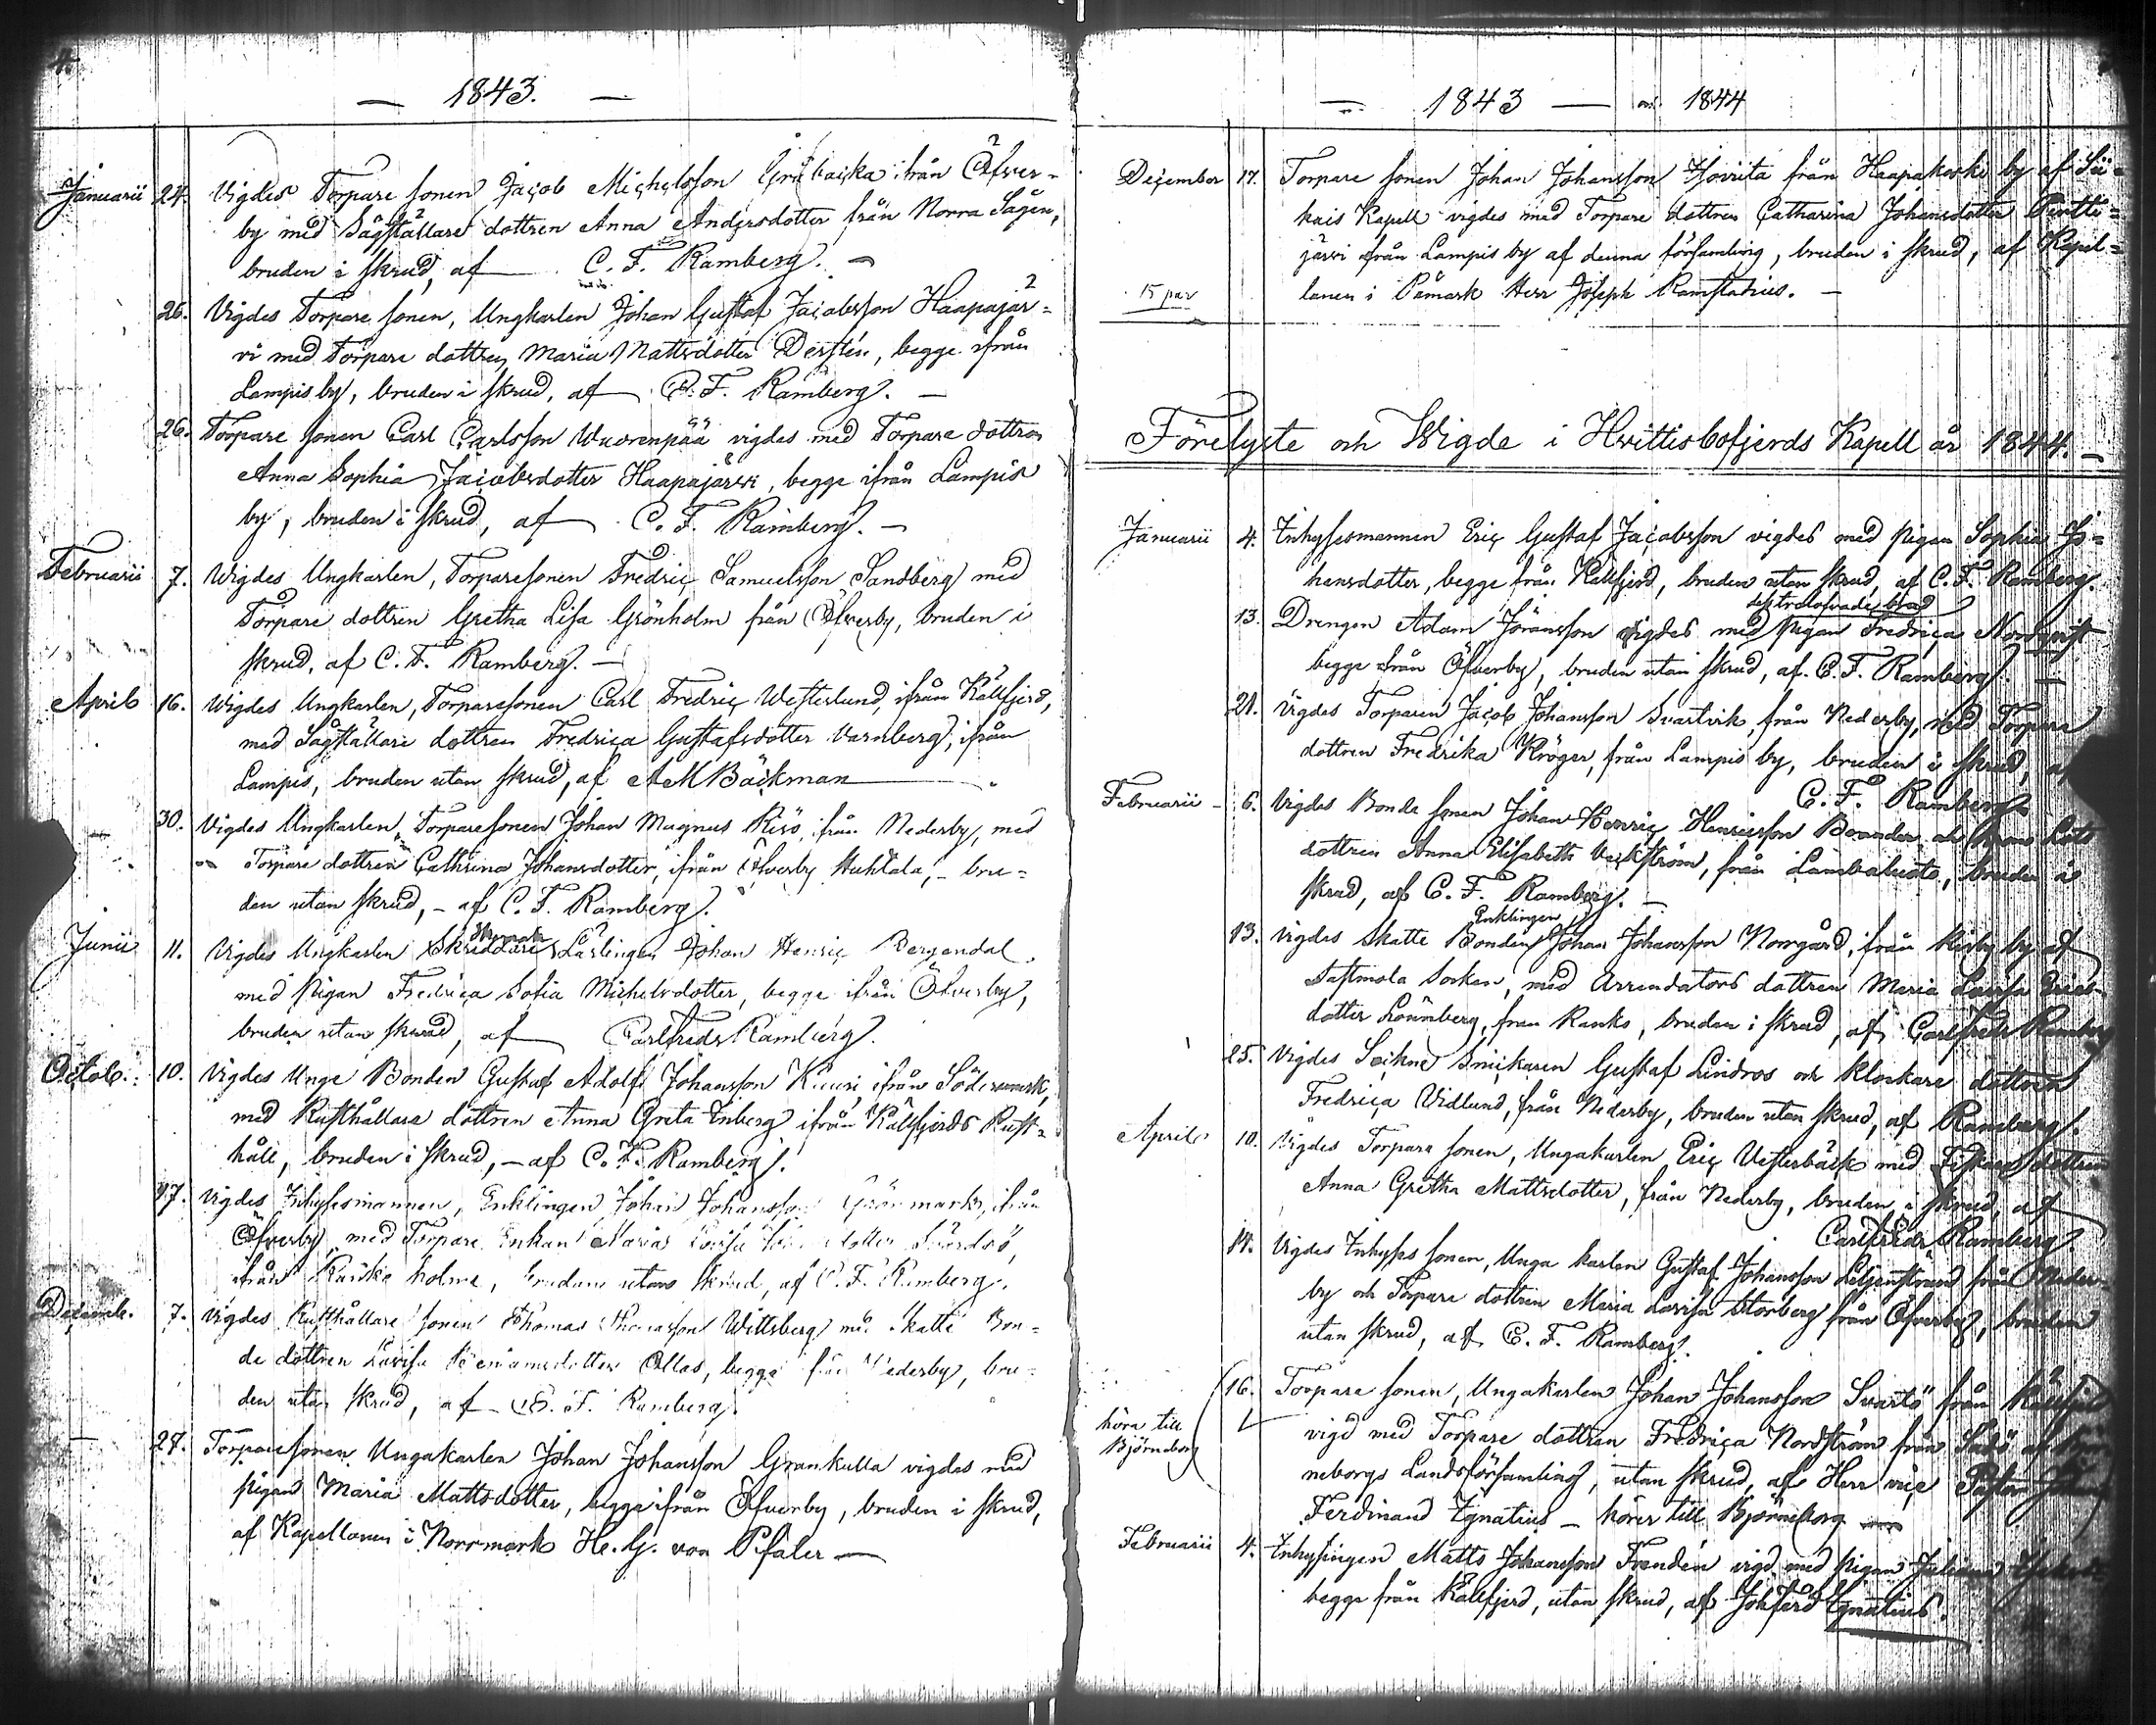 — 1843. —
Januarii 24. Vigdes Torpare sonen Jacob Michelsson Gråbacka ifrån Öfver-
by med Sågställare dottren Anna Andersdotter från Norra Sågen,
bruden i skrud, af C. F. Ramberg. —
26. Vigdes Torpare sonen, Ungkarlen Johan Gustaf Jacobsson Haapajär-
vi med Torpare dottren Maria Mattsdotter Dersten, begge ifrån
Lampis by, bruden i skrud, af C. F. Ramberg. —
26. Torpare sonen Carl Carlsson Wuorenpää vigdes med Torpare dottren
Anna Sophia Jacobsdotter Haapajärvi, begge ifrån Lampis
by, bruden i skrud, af C. F. Ramberg. —
Februarii 7. Wigdes Ungkarlen, Torparesonen Fredric Samuelsson Sandberg med
Torpare dottren Gretha Lisa Grönholm från Öfverby, bruden i
skrud, af C. F. Ramberg. —
April 16. Wigdes Ungkarlen, Torparesonen Carl Fredric Westerlund, ifrån Källfjerd,
med Sågställare dottren Fredrica Gustafsdotter Varnberg, ifrån
Lampis, bruden utan skrud, af A M Bäckman
30. Vigdes Ungkarlen, Torparesonen Johan Magnus Risö, ifrån Nederby, med
Torpare dottren Cathrina Johansdotter, ifrån Öfverby Huhtala, – bru-
den utan skrud, – af C. F. Ramberg.
Junii 11. Vigdes Ungkarlen Skräddare Lärlingen Johan Henric Bergendal
med pigan Fredrica Sofia Michelsdotter, begge ifrån Öfverby,
bruden utan skrud, af Carl Fredr Ramberg.
Octob. 10. Vigdes Unge Bonden Gustaf Adolf Johansson Kuuri, ifrån Södermark,
med Rusthållare dottren Anna Greta Enberg ifrån Källfjerds Rust-
håll, bruden i skrud, – af C. F. Ramberg.
17. Vigdes Inhysesmannen, Enklingen Johan Johansson Grönmark, ifrån
Öfverby, med Torpare Enkan Maria Lovisa dotter
ifrån holme, bruden utan skrud, af C. F. Ramberg.
Decemb. 7. Vigdes Rusthållare sonen Thomas Thomasson Wittsberg med Skatte Bon-
de dottren Lovisa Benjamsdotter Ollas, begge från Nederby, bru-
den utan skrud, af C. F. Ramberg.
27. Torparesonen Ungakarlen Johan Johansson Grankulla vigdes med
pigan Maria Mattsdotter, begge ifrån Öfverby, bruden i skrud,
af Kapellanen i Norrmark He. G. von Pfaler —
— 1843 — och 1844
December 17. Torpare sonen Johan Johansson Hovrita från Haapakoski by af Sii-
kais Kapell vigdes med Torpare dottren Catharina Johansdotter Pentti-
järvi från Lampis by af denna församling, bruden i skrud, af Kapel-
15 par lanen i Påmark Herr Joseph Ramstadius. —
Förelyste och Wigde i Hvittisbofjerds Kapell år 1844. —
Januarii 4. Inhysesmannen Eric Gustaf Jacobsson vigdes med pigan Sophia Jo-
hansdotter, begge från Källfjerd, bruden utan skrud, af C. F. Ramberg.
13. Drengen Adam Jöransson vigdes med pigan Fredrica Norrqvist
begge från Öfverby, bruden utan skrud, af C. F. Ramberg. —
21. Vigdes Torparen Jacob Johansson Svartvik, från Nederby, med Torpare
dottren Fredrika Kröger, från Lampis by, bruden i skrud, af
C. F. Ramberg
Februarii 6. Vigdes Bonde sonen Johan Henric Henricsson
dottren Anna Elisabeth Veckström, från Lambaluoto, bruden i
skrud, af C. F. Ramberg. —
Enklingen
13. Vigdes Skatte Bonden Johan Johansson Norrgård, från by af
Sastmola Socken, med Arrendators dottren Maria Lovisa Erics-
dotter Lönnberg, från Ranko, bruden i skrud, af Carl Fredr Ramberg
25. Vigdes Sockne Snickaren Gustaf Lindros och Klockare dottren
Fredrica Vidlund, från Nederby, bruden utan skrud, af Ramberg.
April 10. Vigdes Torpare sonen, Ungakarlen Eric Vesterbäck med Fiskare dottren
Anna Gretha Mattsdotter, från Nederby, bruden i skrud, af
Carl Fredr Ramberg
14. Vigdes Inhyses sonen, Unga karlen Gustaf Johansson Liljenstrand från Neder-
by och Torpare dottren Maria Lovisa Storberg från Öfverby, bruden
utan skrud, af C. F. Ramberg.
16. Torpare sonen, Ungakarlen Johan Johansson Svartö från Källfjerd
höra till
Björneborg
vigd med Torpare dottren Fredrica Nordström från af Bjö-
neborgs Landsförsamling, utan skrud, af Herr vice Pastor
Ferdinand Ignatius – hörer till Björneborg
Februarii 4. Inhysingen Matts Johansson Frendén vigd med pigan Juliana
begge från Källfjerd, utan skrud, af Joh Ferd Ignatius.